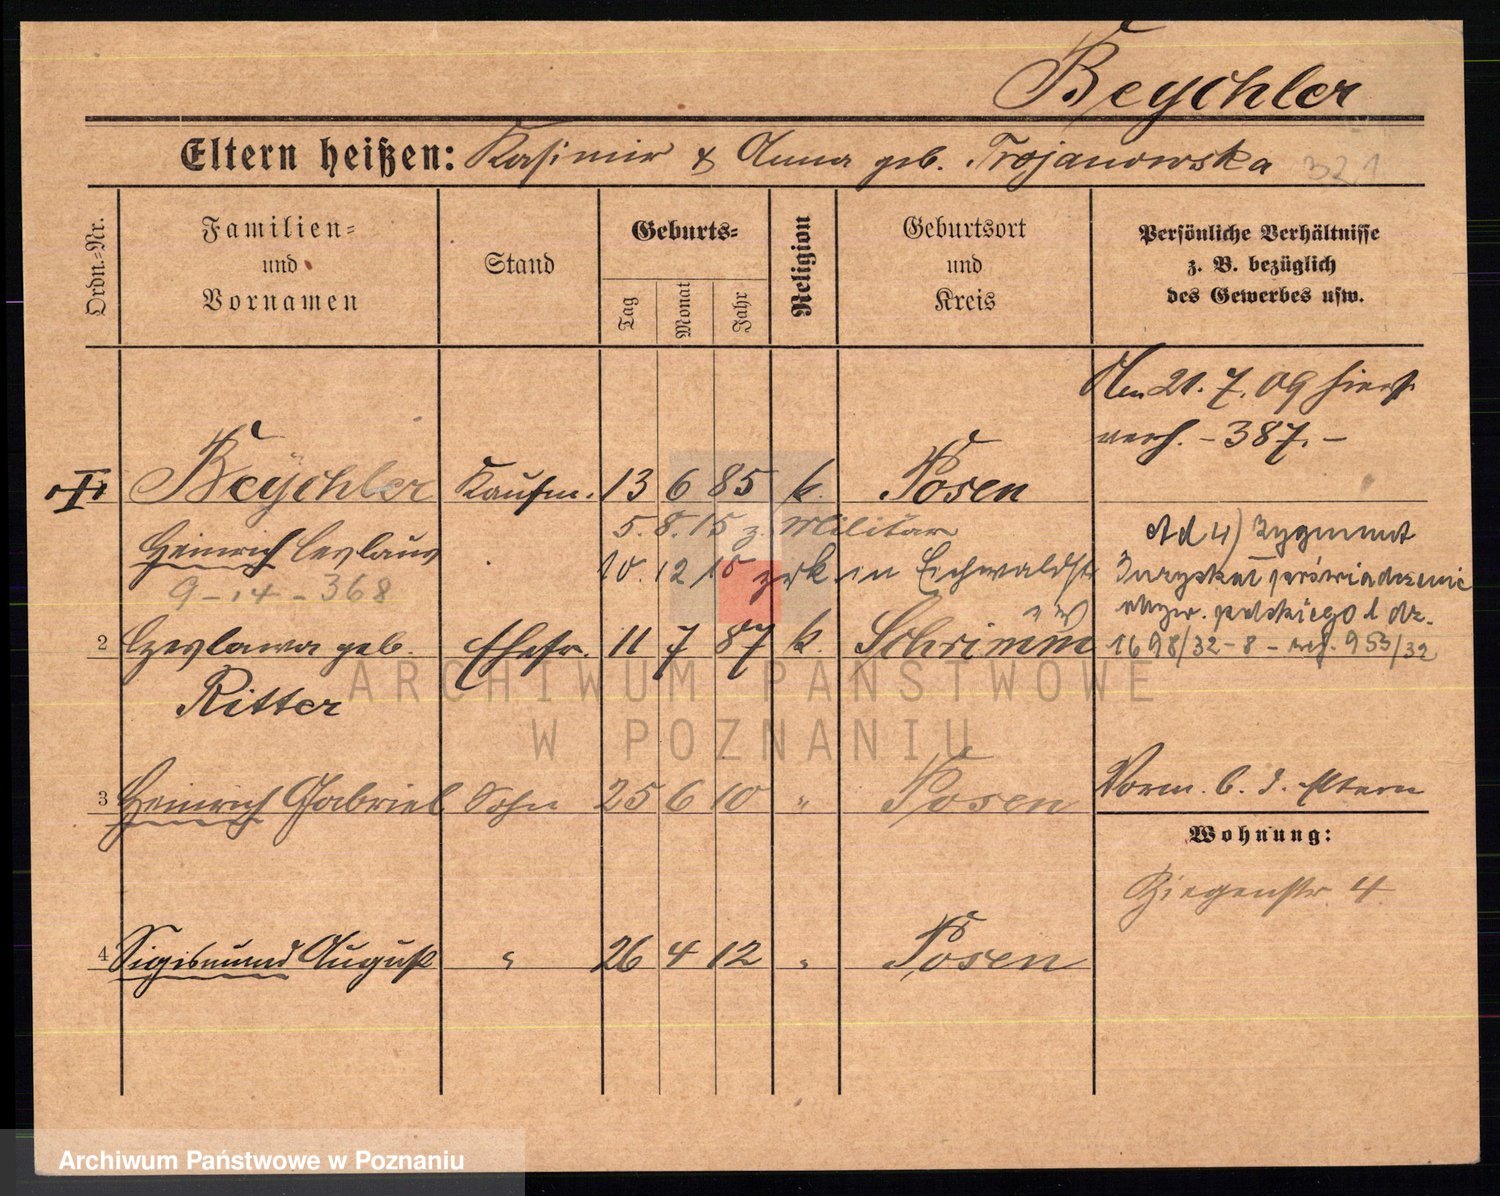 Beychler
Eltern heißen: Kasimir & Anna geb. Trojanowska 321
Ordn.-Nr.
Familien-
und
Vornamen
Stand
Geburts-
Tag
Monat
Jahr
Religion
Geburtsort
und
Kreis
Persönliche Verhältnisse
z. B. bezüglich
des Gewerbes usw.
Am 21. 7. 09 hier
verh. - 387. -
Beychler Kaufm. 13 6 85 k. Posen
5. 8. 15 z. Militär
Heinrich Ceslaus
10. 12 15 zrk. in Eichwaldstr
9 - 14 - 368
Ad 4) Zygmunt
Zuzyskał poświadczenie
obyw. polskiego l. dz.
1698/32-8 - rej. 953/32
2 Czeslawa geb. Ehefr. 11 7 87 k. Schrimm
Ritter
3 Heinrich Gabriel Sohn 25 6 10 " Posen
Vorm. b. d. Eltern
Wohnung:
Ziegenstr. 4
4 Sigismund August " 26 4 12 " Posen
ARCHIWUM PAŃSTWOWE
W POZNANIU
Archiwum Państwowe w Poznaniu